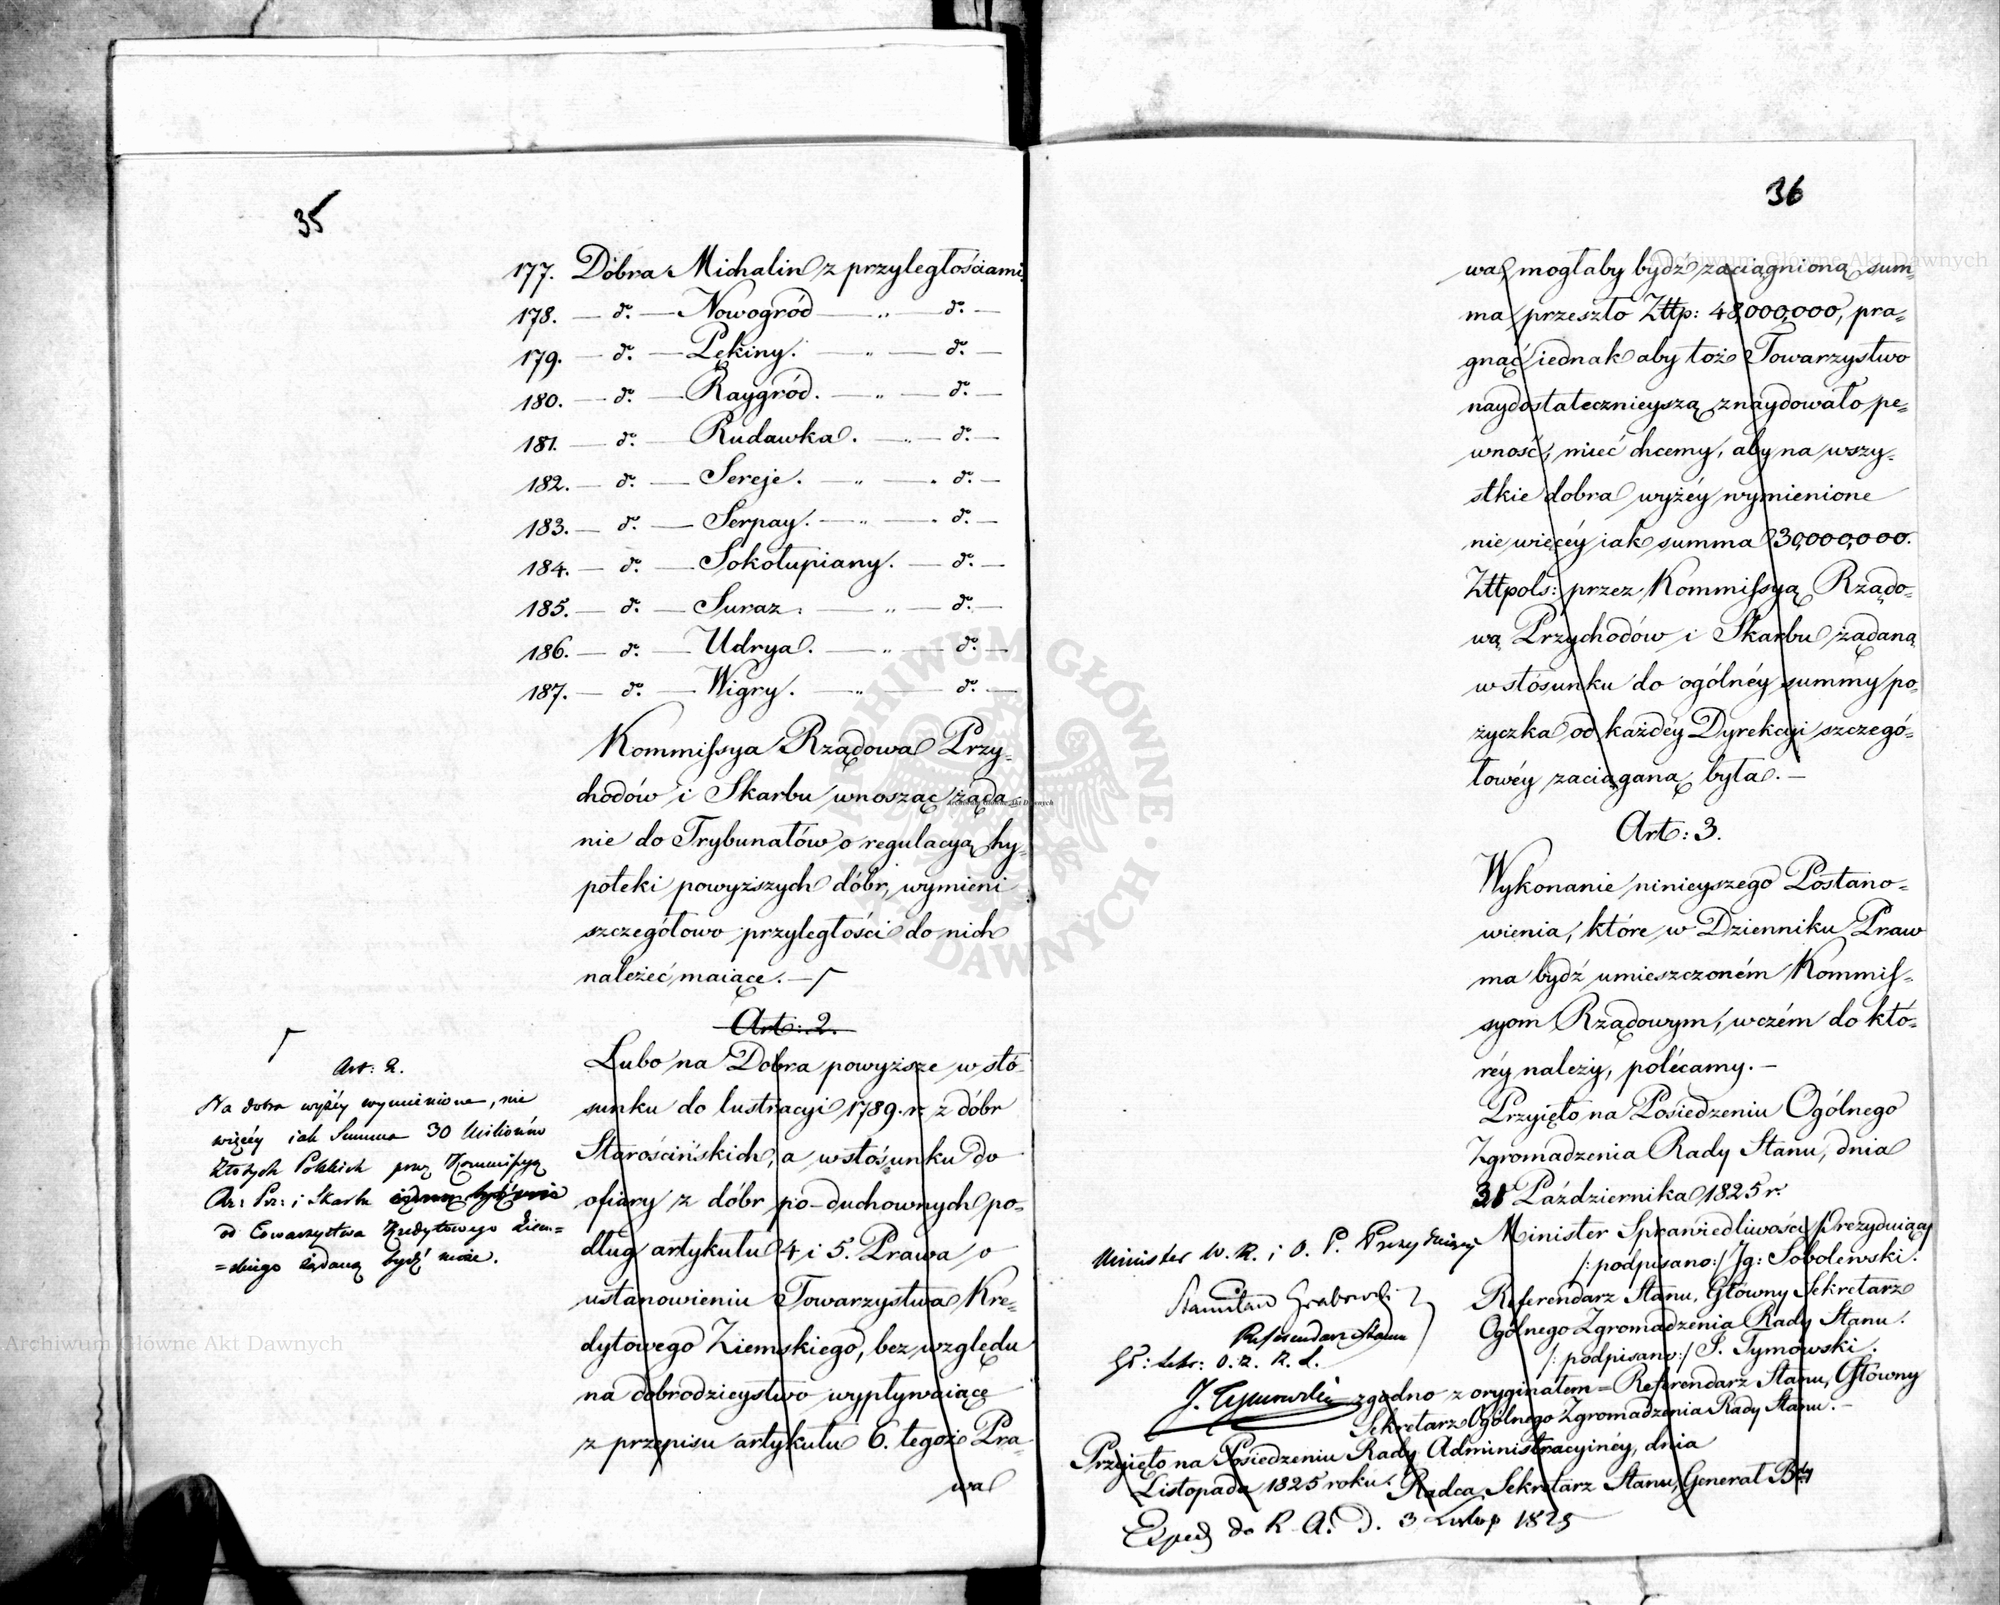 35
177. Dobra Michalin z przyległościami
178. — do. — Nowogród — „ — do. —
179. — do. — Pękiny. — „ — do. —
180. — do. — Raygród. — „ — do. —
181. — do. — Rudawka. — „ — do. —
182. — do. — Sereje. — „ — do. —
183. — do. — Serpay. — „ — do. —
184. — do. — Sokołupiany. — do. —
185. — do. — Suraz. — „ — do. —
186. — do. — Udrya. — „ — do. —
187. — do. — Wigry. — „ — do. —
Kommissya Rządowa Przy-
chodów i Skarbu wnosząc żąda-
nie do Trybunałów o regulacyą hy-
poteki powyższych dóbr, wymieni
szczegółowo przyległości do nich
należeć maiące. —
Art: 2.
Lubo na Dobra powyższe w stó-
sunku do lustracyi 1789. r. z dóbr
Starościńskich, a w stósunku do
ofiary z dóbr po-duchownych po-
dług artykułu 4 i 5. Prawa o
ustanowieniu Towarzystwa Kre-
dytowego Ziemskiego, bez względu
na dobrodzieystwo wypływaiące
z przepisu artykułu 6. tegoż Pra-
wa
Art: 2.
Na dobra wyżéy wymienione, nie
więcéy iak Summa 30 Milionów
Złotych Polskich przez Kommissyą
Rz: Prz: i Skarbu
od Towarzystwa Kredytowego Ziem=
=skiego żądaną bydź może.
36
wa, mogłaby bydź zaciągnioną sum-
ma przeszło Złtp: 48,000,000, pra-
gnąć iednak aby toż Towarzystwo
naydostatecznieyszą znaydowało pe-
wność, mieć chcemy, aby na wszy-
stkie dobra wyżéy wymienione
nie więcéy iak summa 30,000,000.
Złtpols: przez Kommissyą Rządo-
wą Przychodów i Skarbu żądana
w stósunku do ogólnéy summy po-
życzka od każdéy Dyrekcyi szczegó-
łowéy zaciąganą była. —
Art: 3.
Wykonanie ninieyszego Postano-
wienia, które w Dzienniku Praw
ma bydź umieszczoném Kommis-
syom Rządowym, w czém do któ-
réy należy, polécamy. —
Przyięto na Posiedzeniu Ogólnego
Zgromadzenia Rady Stanu, dnia
31 Października 1825 r.
Minister Sprawiedliwości Prezyduiący
/: podpisano :/ Jg: Sobolewski.
Referendarz Stanu, Główny Sekretarz
Ogólnego Zgromadzenia Rady Stanu.
/: podpisano :/ J. Tymowski.
zgodno z oryginałem = Referendarz Stanu, Główny
Sekretarz Ogólnego Zgromadzenia Rady Stanu. —
Minister W. R. i O. P. Prezyduiący
Stanisław Grabowski
Referendarz Stanu
Gł: Sekr: O. Z. R. S.
J. Tymowski
Przyięto na Posiedzeniu Rady Administracyinéy, dnia
Listopada 1825 roku. Radca Sekretarz Stanu, Generał Bdy
Exped do R. A. D. 3 Listop 1825
Archiwum Główne Akt Dawnych
Archiwum Główne Akt Dawnych
Archiwum Główne Akt Dawnych
ARCHIWUM GŁÓWNE AKT DAWNYCH